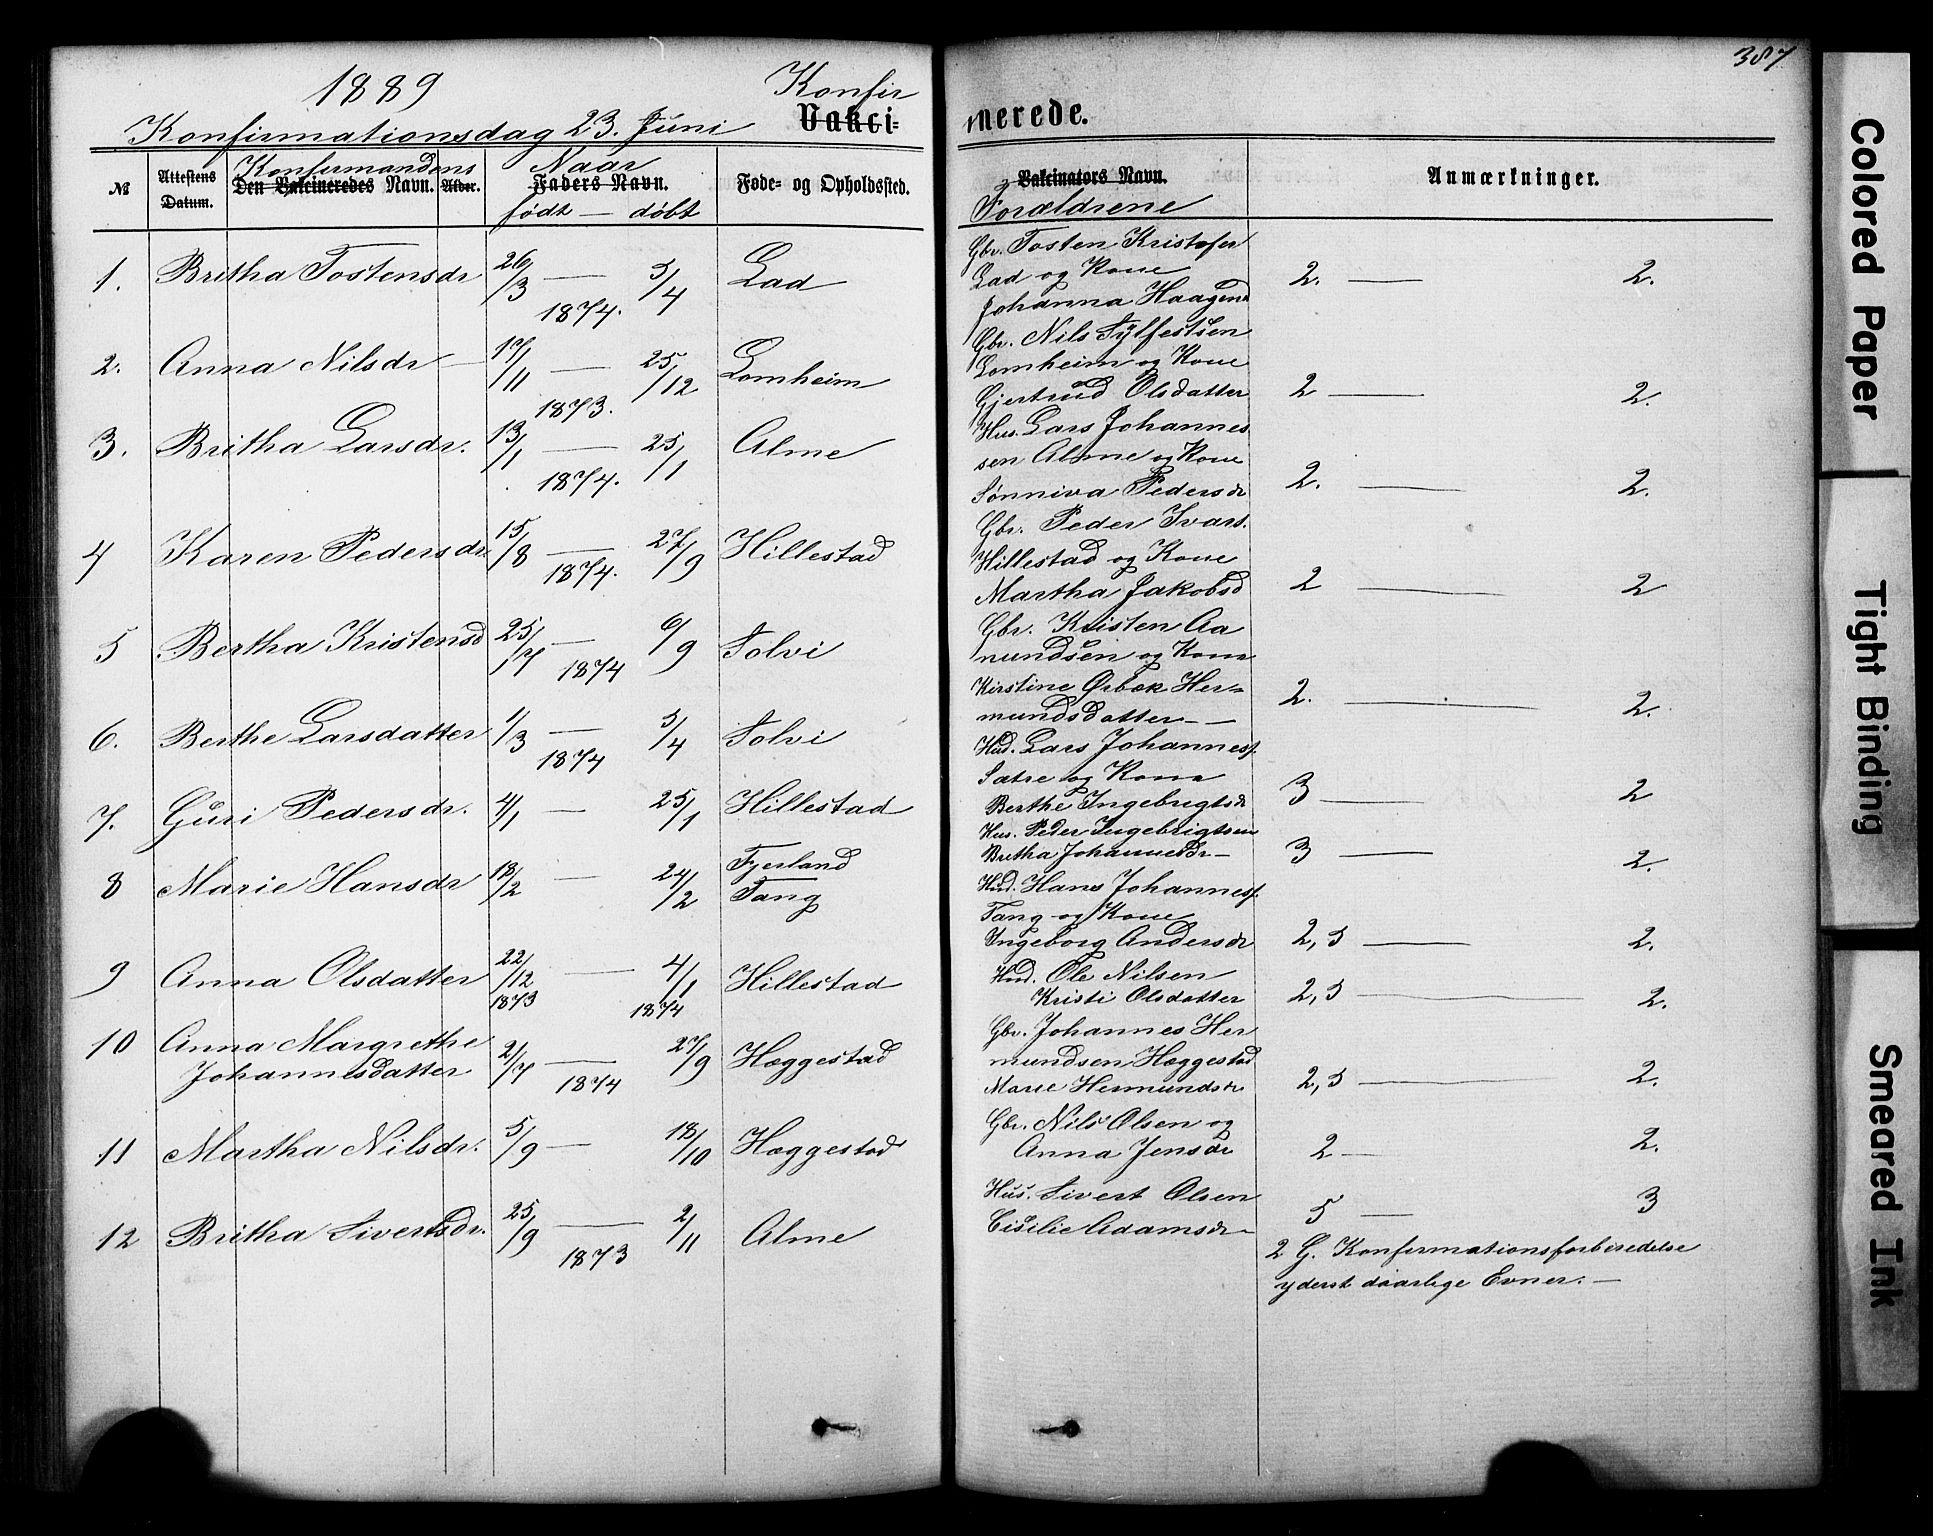 387
1889
Konfir
Konfirmationsdag 23. Juni Vakci-
nerede.
№ Attestens Datum. Konfirmandens Den Vakcineredes Navn. Alder. Naar Faders Navn. født — døbt Føde- og Opholdssted. Vakcinators Navn. Forældrene Anmærkninger.
1. Britha Tostensdr 26/3 — 1874. 5/4 Lad
Gbr. Tosten Kristofer
Lad og Kone
Johanna Haagend 2. — 2.
2. Anna Nilsdr — 17/11 — 1873. 25/12 Lomheim
Gbr. Nils Sylfestsen
Lomheim og Kone
Gjertrud Olsdatter 2 — 2.
3. Britha Larsdr. 13/1 — 1874. 25/1 Alme
Hus. Lars Johannes
sen Alme og Kone
Sønniva Pedersdr 2. — 2.
4 Karen Pedersdr. 15/8 — 1874. 27/9 Hillestad
Gbr. Peder Ivars.
Hillestad og Kone
Martha Jakobsd 2 — 2
5 Bertha Kristensd 25/7 — 1874 6/9 Solvi
Gbr. Kristen Aa
mundsen og Kone
Kirstine Ørbæk Her-
mundsdatter — 2. — 2.
6. Berthe Larsdatter 1/3 — 1874 5/4 Solvi
Hud. Lars Johanness.
Sætre og Kone
Berthe Ingebrigtsdr 3 — 2
7. Guri Pedersdr. 4/1 — 25/1 Hillestad
Hus. Peder Ingebrigtsen
Britha Johannesdr — 3 — 2.
8 Marie Hansdr 13/2 — 24/2 Fjerland
Tang
Hud. Hans Johanness.
Tang og Kone
Ingeborg Andersdr 2,5 — 2.
9 Anna Olsdatter 22/12 1873 — 4/1 1874 Hillestad
Hud. Ole Nilsen
Kristi Olsdatter 2,5 — 2.
10 Anna Margrethe
Johannesdatter 21/7 — 1874 27/9 Hæggestad
Gbr. Johannes Her
mundsen Hæggestad
Marie Hermundsdr 2,5 — 2.
11 Martha Nilsdr. 5/9 — 18/10 Hæggestad
Gbr. Nils Olsen og
Anna Jensdr 2 — 2.
12 Britha Sivertsdr. 25/9 — 1873 2/11 Alme
Hus. Sivert Olsen
Cisilie Adamsdr — 5 — 3
2 G. Konfirmationsforberedelse
yderst daarlige Evner. —
Colored Paper
Tight Binding
Smeared Ink